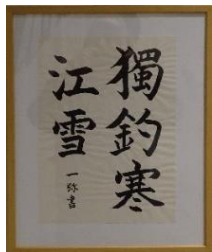 獨釣寒
江雪
一弥書